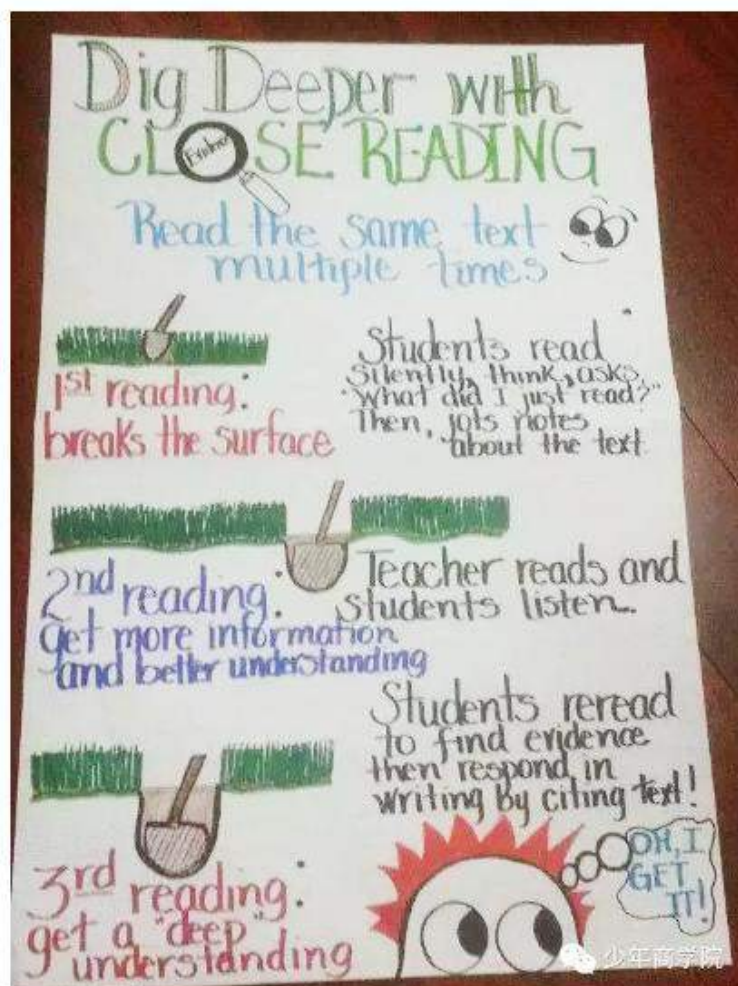 Dig Deeper with
CLOSE READING
Evidence
Read the same text
multiple times
1st reading:
breaks the surface
Students read
silently, think, asks,
"What did I just read?"
Then, jots notes
about the text.
2nd reading:
get more information
and better understanding
Teacher reads and
students listen.
3rd reading:
get a "deep"
understanding
Students reread
to find evidence
then respond in
writing by citing text!
OH, I
GET
IT!
少年商学院